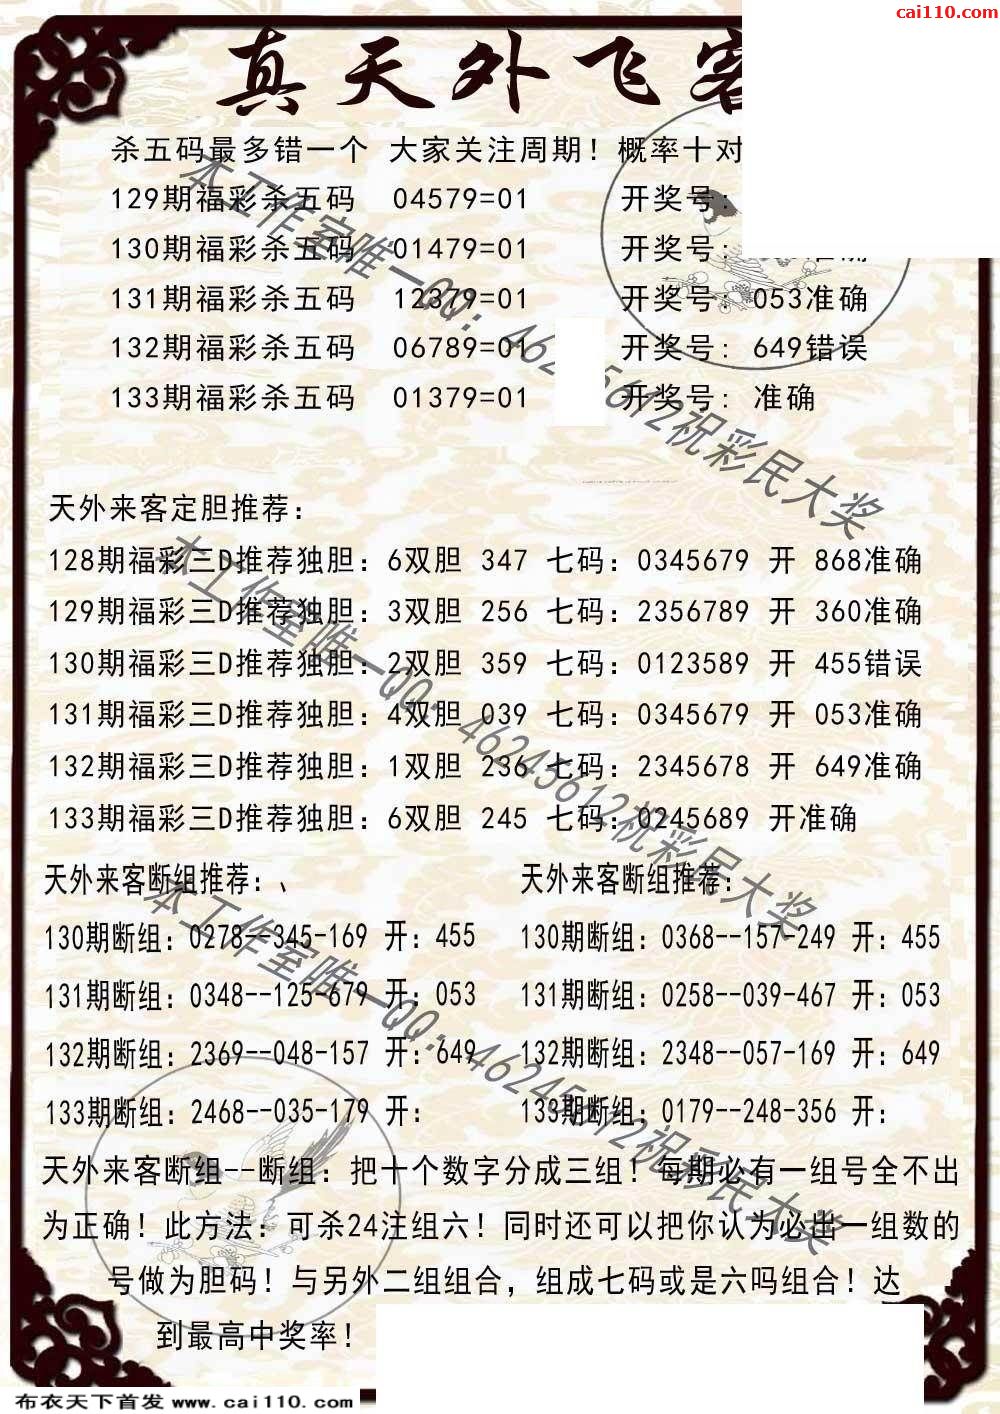 cai110.com
真天外飞客
杀五码最多错一个 大家关注周期！概率十对
129期福彩杀五码 04579=01 开奖号:
130期福彩杀五码 01479=01 开奖号:
131期福彩杀五码 12379=01 开奖号: 053准确
132期福彩杀五码 06789=01 开奖号: 649错误
133期福彩杀五码 01379=01 开奖号: 准确
天外来客定胆推荐：
128期福彩三D推荐独胆：6双胆 347 七码：0345679 开 868准确
129期福彩三D推荐独胆：3双胆 256 七码：2356789 开 360准确
130期福彩三D推荐独胆：2双胆 359 七码：0123589 开 455错误
131期福彩三D推荐独胆：4双胆 039 七码：0345679 开 053准确
132期福彩三D推荐独胆：1双胆 236 七码：2345678 开 649准确
133期福彩三D推荐独胆：6双胆 245 七码：0245689 开准确
天外来客断组推荐：、
130期断组：0278--345-169 开：455
131期断组：0348--125-679 开：053
132期断组：2369--048-157 开：649
133期断组：2468--035-179 开：
天外来客断组推荐：
130期断组：0368--157-249 开：455
131期断组：0258--039-467 开：053
132期断组：2348--057-169 开：649
133期断组：0179--248-356 开：
天外来客断组--断组：把十个数字分成三组！每期必有一组号全不出
为正确！此方法：可杀24注组六！同时还可以把你认为必出一组数的
号做为胆码！与另外二组组合，组成七码或是六吗组合！达
到最高中奖率！
本工作室唯一QQ：46245612祝彩民大奖
本工作室唯一QQ：46245612祝彩民大奖
本工作室唯一QQ：46245612祝彩民大奖
布衣天下首发 www.cai110.com